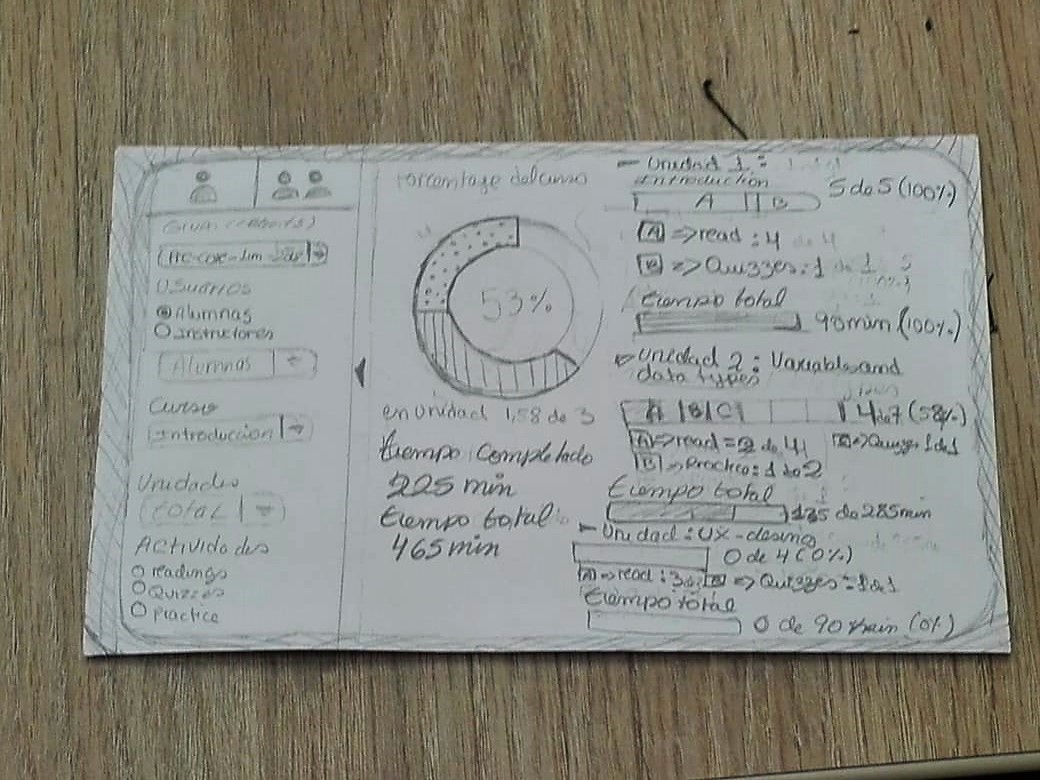 Usuarios
Alumnas
Instructores
Alumnas
Curso
Introduccion
Unidades
total
Actividades
readings
Quizzes
Practice
Porcentage del curso
53%
en unidad 1,58 de 3
tiempo completado
225 min
tiempo total
465 min
Unidad 1:
introduction
5 de 5 (100%)
A B
A => read : 4 de 4
B => Quizzes: 1 de 1
tiempo total
90min (100%)
Unidad 2: Variables and
data types
A B C
4 de 7 (58%)
A => read = 2 de 4
=> Quizzes 1 de 1
B => Practica: 1 de 2
tiempo total
135 de 285min
Unidad : UX-desing
0 de 4 (0%)
A => read : 3 => Quizzes =
tiempo total
0 de 90 min (0%)